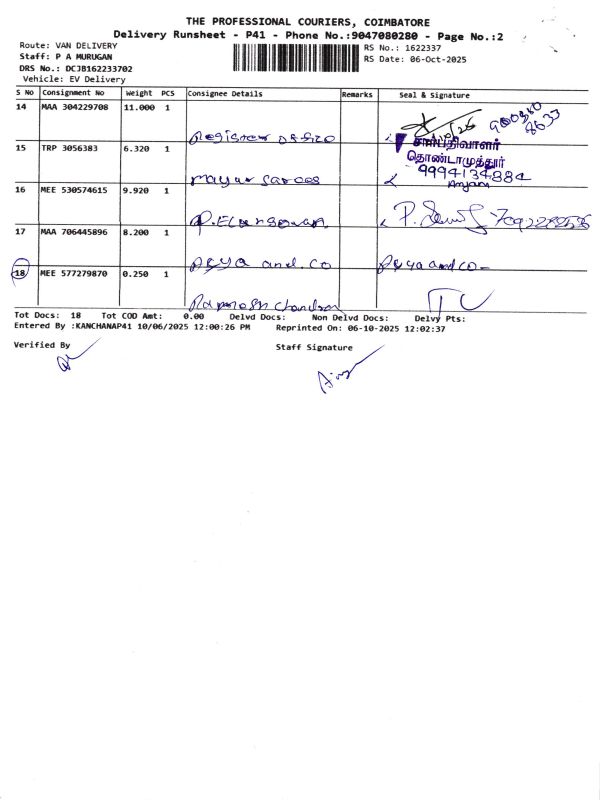 THE PROFESSIONAL COURIERS, COIMBATORE
Delivery Runsheet - P41 - Phone No.:9047080280 - Page No.:2
Route: VAN DELIVERY
Staff: P A MURUGAN
DRS No.: DCJB162233702
Vehicle: EV Delivery
RS No.: 1622337
RS Date: 06-Oct-2025
S No Consignment No Weight PCS Consignee Details Remarks Seal & Signature
14 MAA 304229708 11.000 1
Register office
சார்பதிவாளர்
தொண்டாமுத்தூர்
15 TRP 3056383 6.320 1
mayur sarees
9994134884
Anjani
16 MEE 530574615 9.920 1
P.Elangovan
17 MAA 706445896 8.200 1
Priya and.co Priya and co-
18 MEE 577279870 0.250 1
Ramesh chandran
Tot Docs: 18 Tot COD Amt: 0.00 Delvd Docs: Non Delvd Docs: Delvy Pts:
Entered By :KANCHANAP41 10/06/2025 12:00:26 PM Reprinted On: 06-10-2025 12:02:37
Verified By Staff Signature